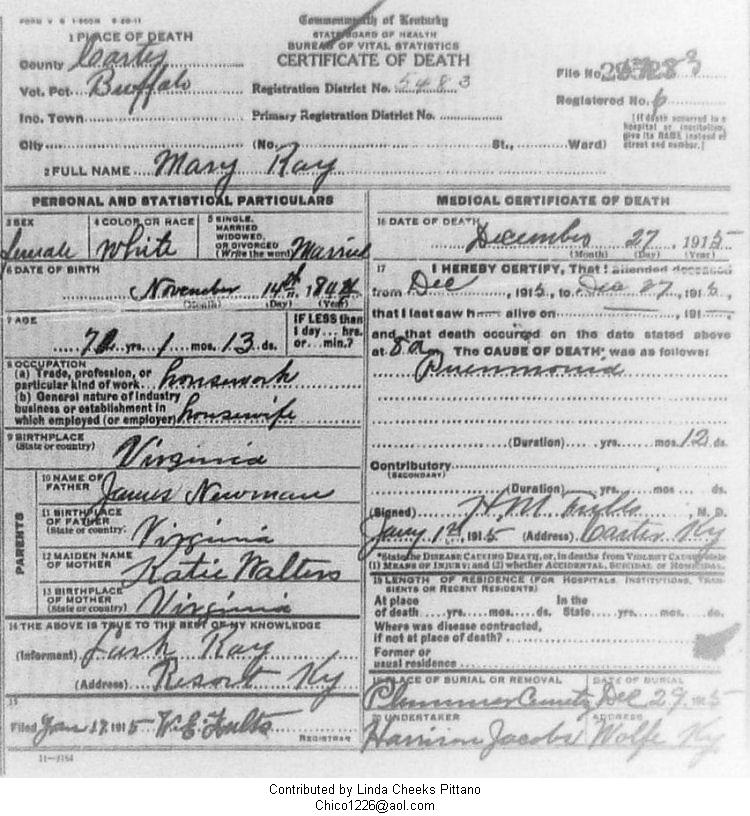 FORM V. S. 1-
Commonwealth of Kentucky
STATE BOARD OF HEALTH
BUREAU OF VITAL STATISTICS
CERTIFICATE OF DEATH
1 PLACE OF DEATH
County Carter
Vot. Pct. Buffalo
Inc. Town
City
Registration District No. 5483
Primary Registration District No.
(No. St., Ward)
File No.
Registered No. 6
[If death occurred in a hospital or institution, give its NAME instead of street and number.]
2 FULL NAME Mary Kay
PERSONAL AND STATISTICAL PARTICULARS
3 SEX
female
4 COLOR OR RACE
White
5 SINGLE, MARRIED WIDOWED, OR DIVORCED (Write the word) Married
6 DATE OF BIRTH
November 14th,
(Month) (Day) (Year)
7 AGE
yrs. 1 mos. 13 ds.
IF LESS than 1 day... hrs. or... min.?
8 OCCUPATION
(a) Trade, profession, or particular kind of work housework
(b) General nature of industry business or establishment in which employed (or employer) housewife
9 BIRTHPLACE
(State or country) Virginia
PARENTS
10 NAME OF FATHER James Newman
11 BIRTHPLACE OF FATHER (State or country) Virginia
12 MAIDEN NAME OF MOTHER Katie Walters
13 BIRTHPLACE OF MOTHER (State or country) Virginia
14 THE ABOVE IS TRUE TO THE BEST OF MY KNOWLEDGE
(Informant) Lush Kay
(Address) Resort Ky
15
Filed Jan 17 1915 W.E. Fults
REGISTRAR
11-3184
MEDICAL CERTIFICATE OF DEATH
16 DATE OF DEATH
December 27, 1915
(Month) (Day) (Year)
17 I HEREBY CERTIFY, That I attended deceased
from Dec, 1915, to Dec 27, 1915,
that I last saw h alive on, 191,
and that death occurred on the date stated above
at 8 a m. The CAUSE OF DEATH* was as follows:
Pneumonia
(Duration) yrs. mos. 12 ds.
Contributory
(SECONDARY)
(Duration) yrs. mos. ds.
(Signed) H M Fults, M. D.
Jany 1st, 1915 (Address) Carter Ky
*State the DISEASE CAUSING DEATH, or, in deaths from VIOLENT CAUSES state (1) MEANS OF INJURY; and (2) whether ACCIDENTAL, SUICIDAL or HOMICIDAL.
18 LENGTH OF RESIDENCE (FOR HOSPITALS, INSTITUTIONS, TRANSIENTS OR RECENT RESIDENTS)
At place of death yrs. mos. ds. In the State yrs. mos. ds.
Where was disease contracted,
if not at place of death?
Former or
usual residence
19 PLACE OF BURIAL OR REMOVAL
Plummer Cemetery
DATE OF BURIAL
Dec 29 1915
20 UNDERTAKER
Harrison Jacobs
ADDRESS
Wolfe Ky
Contributed by Linda Cheeks Pittano
Chico1226@aol.com